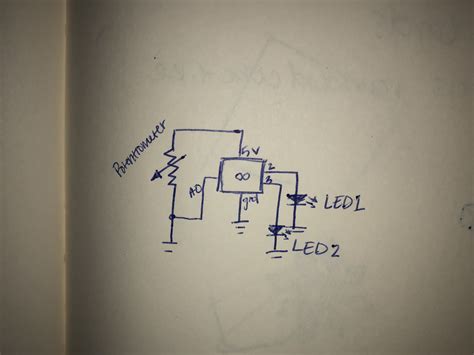 Potentiometer
5V
2
3
∞
A0
gnd
LED1
LED2